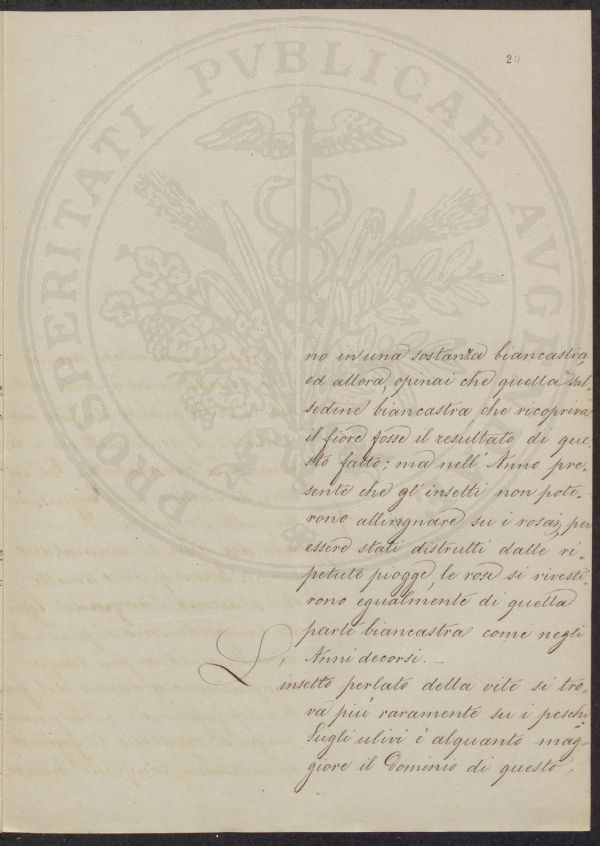 20
PROSPERITATI PVBLICAE AVGENDAE
no in una sostanza biancastra,
ed allora, opinai che quella sal-
sedine biancastra che ricopriva
il fiore fosse il resultato di que-
sto fatto; ma nell' Anno pre-
sente che gl' insetti non pote-
rono allignare su i rosai, per
essere stati distrutti dalle ri-
petute piogge, le rose si rivesti-
rono egualmente di quella
parte biancastra come negli
Anni decorsi. —
L' insetto perlato della vite si tro-
va più raramente su i peschi
Sugli ulivi è alquanto mag-
giore il Dominio di questo,